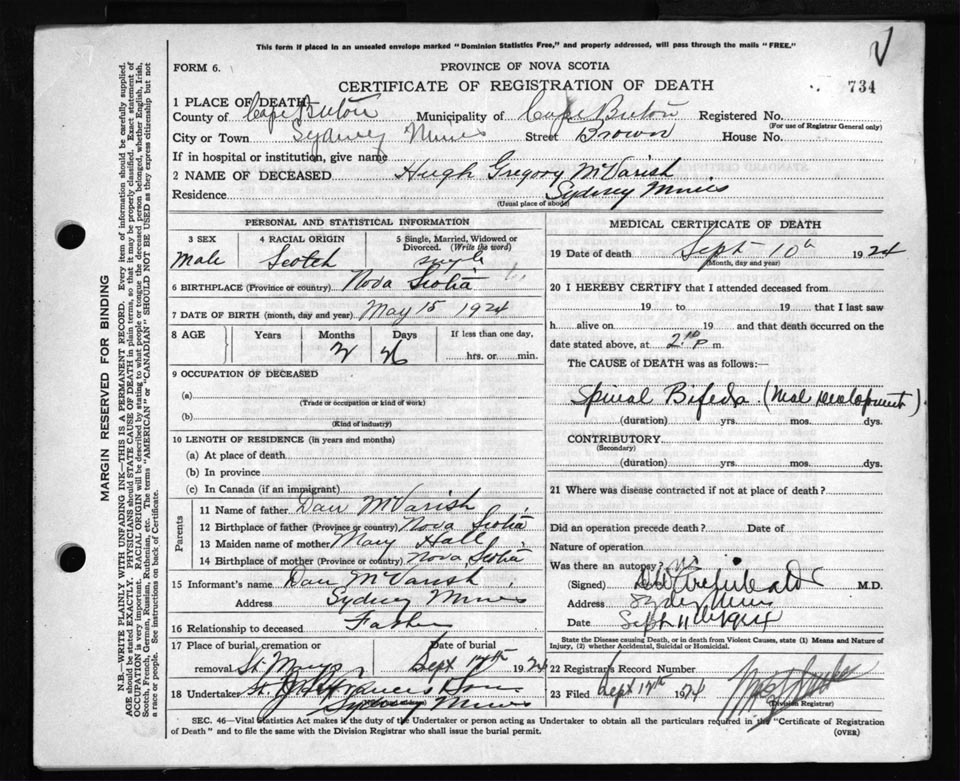 This form if placed in an unsealed envelope marked "Dominion Statistics Free," and properly addressed, will pass through the mails "FREE."
FORM 6.
PROVINCE OF NOVA SCOTIA
CERTIFICATE OF REGISTRATION OF DEATH
734
1 PLACE OF DEATH
County of Cape Breton Municipality of Cape Breton Registered No.
(For use of Registrar General only)
City or Town Sydney Mines Street Brown House No.
If in hospital or institution, give name
2 NAME OF DECEASED Hugh Gregory McVarish
Residence Sydney Mines
(Usual place of abode)
PERSONAL AND STATISTICAL INFORMATION
3 SEX 4 RACIAL ORIGIN 5 Single, Married, Widowed or Divorced. (Write the word)
Male Scotch single
6 BIRTHPLACE (Province or country) Nova Scotia
7 DATE OF BIRTH (month, day and year) May 15 1924
8 AGE Years Months Days If less than one day,
hrs. or min.
9 OCCUPATION OF DECEASED
(a)
(Trade or occupation or kind of work)
(b)
(Kind of industry)
10 LENGTH OF RESIDENCE (in years and months)
(a) At place of death
(b) In province
(c) In Canada (if an immigrant)
Parents
11 Name of father Dan McVarish
12 Birthplace of father (Province or country) Nova Scotia
13 Maiden name of mother Mary Hall
14 Birthplace of mother (Province or country) Nova Scotia
15 Informant's name Dan McVarish
Address Sydney Mines
16 Relationship to deceased Father
17 Place of burial, cremation or removal St. Marys Date of burial Sept 12th 1924
18 Undertaker Sons
Sydney Mines
MEDICAL CERTIFICATE OF DEATH
19 Date of death Sept 10th 1924
(Month, day and year)
20 I HEREBY CERTIFY that I attended deceased from
19 to 19 that I last saw
h alive on 19 and that death occurred on
date stated above, at 2 P m.
The CAUSE OF DEATH was as follows:
Spinal Bifeda (Mal Development)
(duration) yrs. mos. dys.
CONTRIBUTORY
(Secondary)
(duration) yrs. mos. dys.
21 Where was disease contracted if not at place of death?
Did an operation precede death? Date of
Nature of operation
Was there an autopsy? No
(Signed) Archibald M.D.
Address Sydney Mines
Date Sept 11
State the Disease causing Death, or in death from Violent Causes, state (1) Means and Nature of Injury, (2) whether Accidental, Suicidal or Homicidal.
22 Registrar's Record Number
23 Filed Sept 12th 1924
(Division Registrar)
SEC. 46—Vital Statistics Act makes it the duty of the Undertaker or person acting as Undertaker to obtain all the particulars required in the "Certificate of Registration
of Death" and to file the same with the Division Registrar who shall issue the burial permit. (OVER)
MARGIN RESERVED FOR BINDING
N.B.—WRITE PLAINLY WITH UNFADING INK—THIS IS A PERMANENT RECORD. Every item of information should be carefully supplied.
AGE should be stated EXACTLY. PHYSICIANS should STATE CAUSE OF DEATH in plain terms, so that it may be properly classified. Exact statement of
OCCUPATION is very important. RACIAL ORIGIN will be described by stating to what people or tongue the deceased person belonged, whether English, Irish,
Scotch, French, German, Russian, Ruthenian, etc. The terms "AMERICAN" or "CANADIAN" SHOULD NOT BE USED as they express citizenship but not
a race or people. See instructions on back of Certificate.